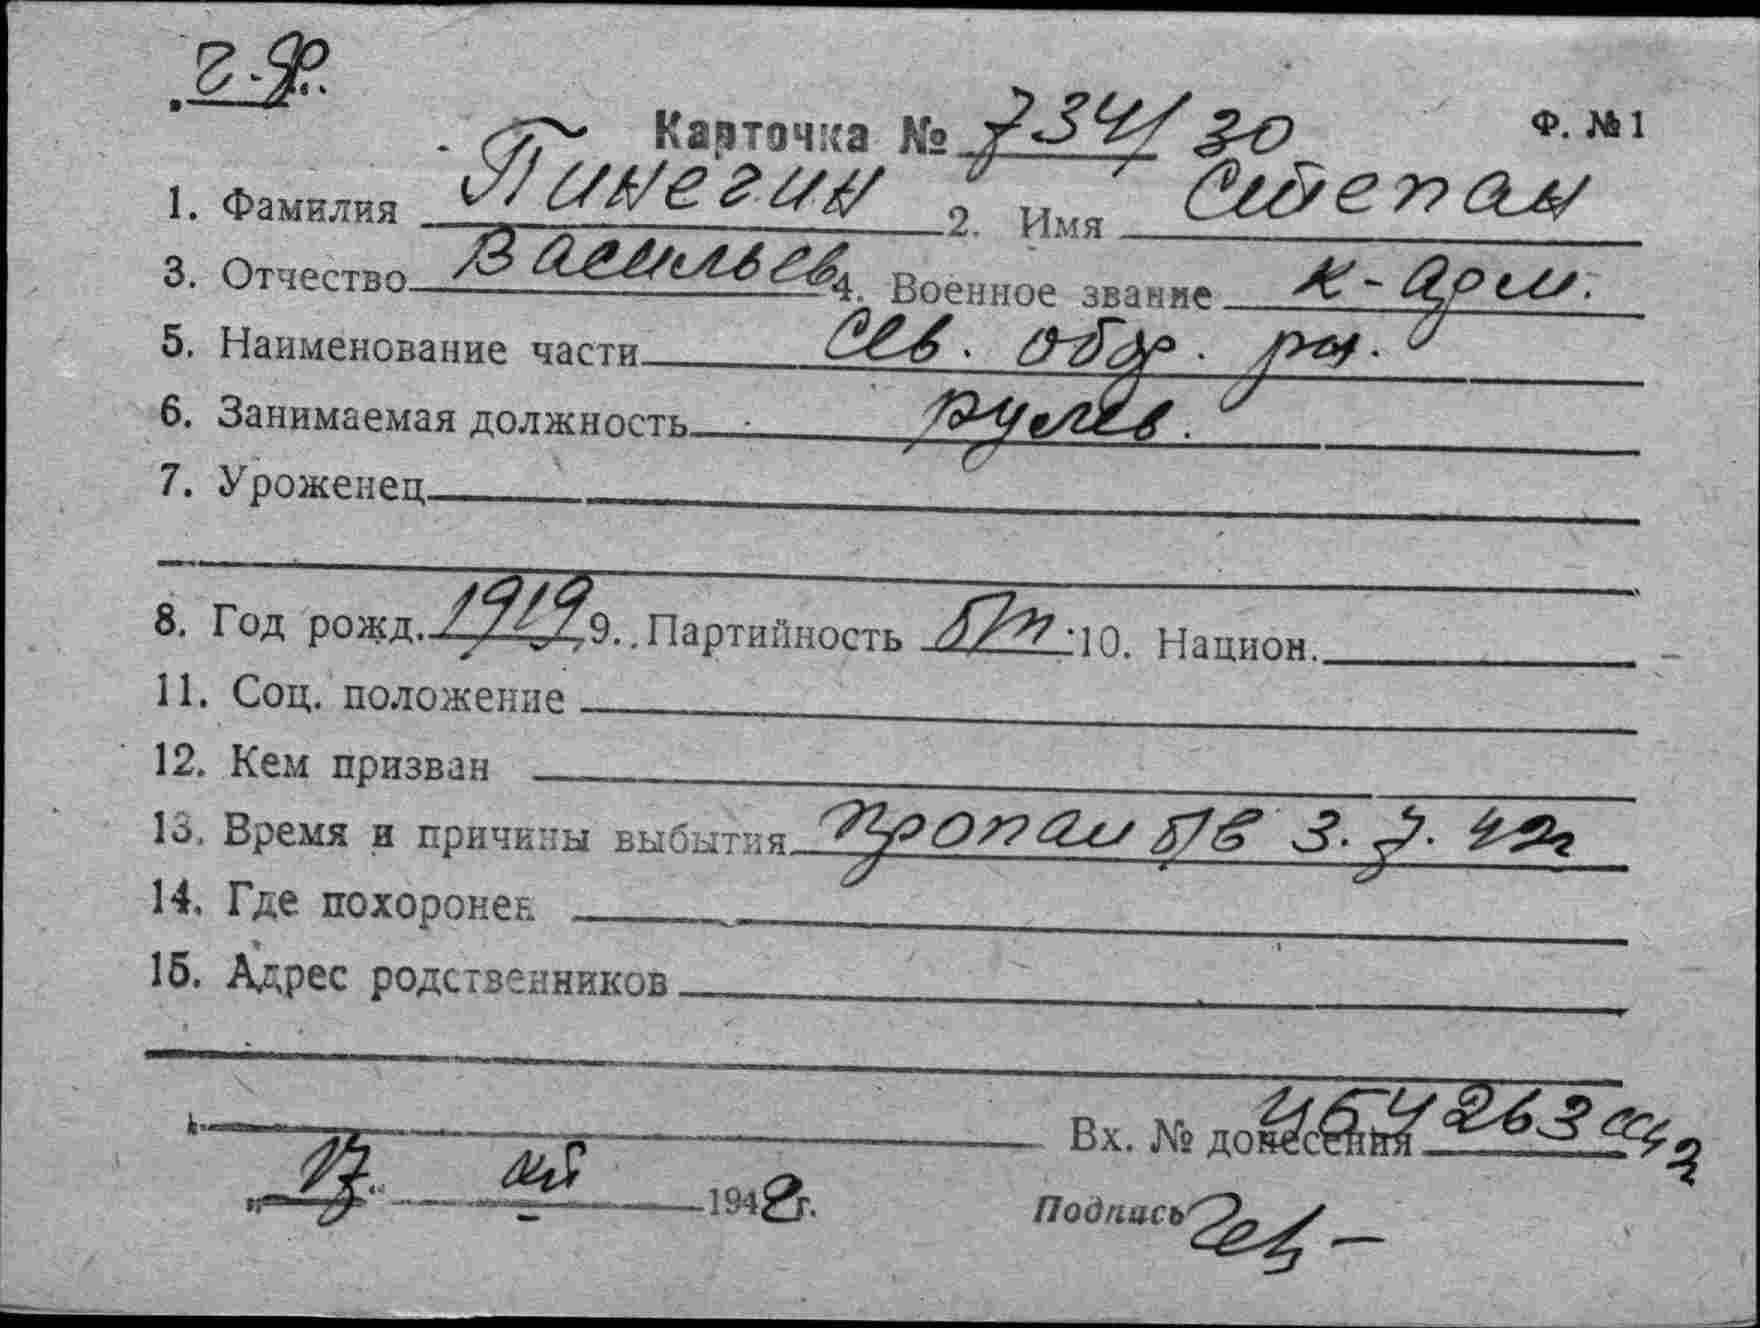 Карточка № 734/30 Ф. №1
1. Фамилия Пинегин 2. Имя Степан
3. Отчество Васильев 4. Военное звание к-арм.
5. Наименование части Сев. обор. р-н.
6. Занимаемая должность рулев.
7. Уроженец
8. Год рожд. 1919 9. Партийность б/п 10. Национ.
11. Соц. положение
12. Кем призван
13. Время и причины выбытия Пропал б/в 3.7.42г
14. Где похоронен
15. Адрес родственников
Вх. № донесения
„17.“ 1948г. Подпись